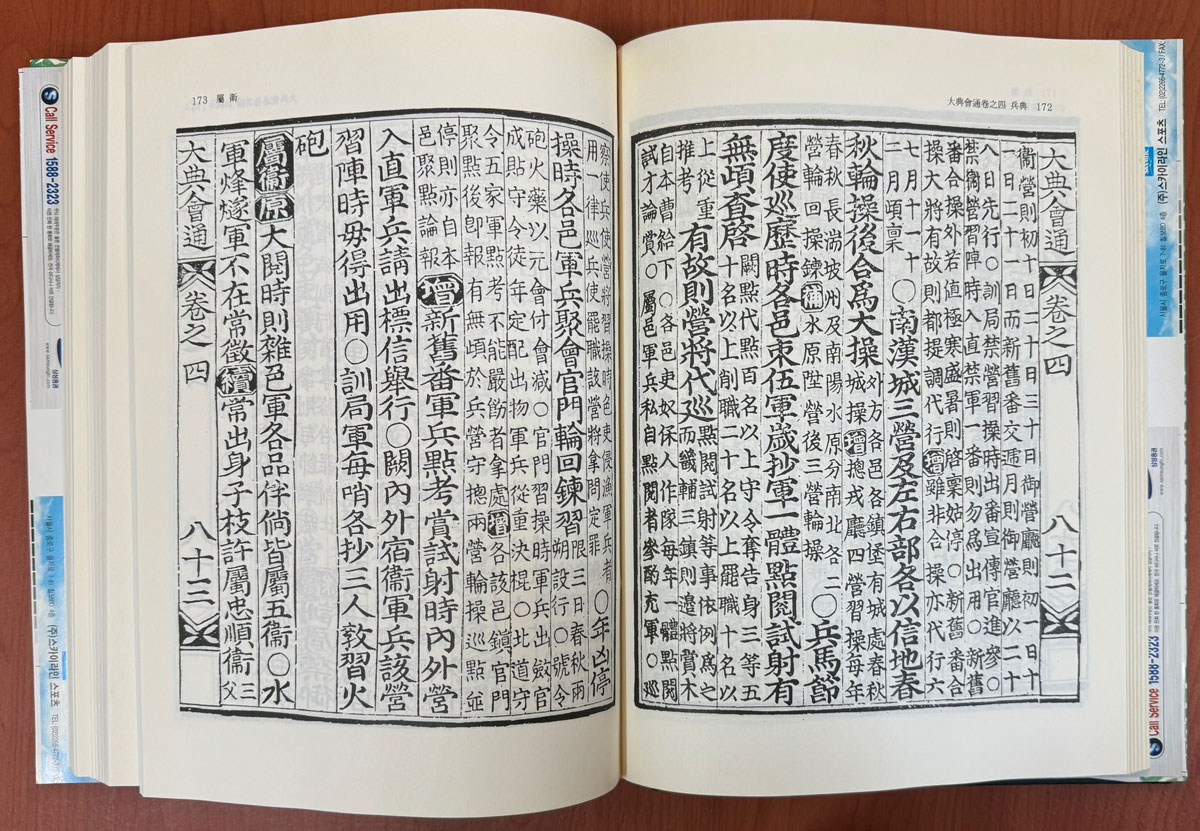 大典會通卷之四 兵典 172
大典會通 卷之四 八十二
衛營則初十日二十日三十日御營廳則初一日十
一日二十一日而新舊番交遞月則御營廳以二十
八日先行○訓局禁營習操時出番宣傳官進參○
禁御營習陣時入直禁軍一番則勿爲出用○新舊
番合操外若値極寒盛暑則啓稟姑停○新舊番合
操大將有故則都提調代行增雖非合操亦代行六
七月十一十
二月頃稟
○南漢城三營及左右部各以信地春
秋輪操後合爲大操
外方各邑各鎭堡有城處春秋
城操增摠戎廳四營習操每年
春秋長湍坡州及南陽水原分南北各二
營輪回操鍊補水原陞營後三營輪操
○兵馬節
度使巡歷時各邑束伍軍歲抄軍一體點閱試射有
無頉査啓
闕點代點百名以上守令奪告身三等五
十名以上削職二十名以上罷職十名以
上從重
推考
有故則營將代巡
點閱試射等事依例爲之
而畿輔三鎭則邊將賞木
自本曹給下○各邑吏奴保人作隊每年一體點閱
試才論賞○屬邑軍兵私自點閱者參酌充軍○巡
173 屬衛
察使兵使營將習操時色吏侵漁軍兵者
用一律巡兵使罷職該營將拿問定罪
○年凶停
操時各邑軍兵聚會官門輪回鍊習
限三日春秋兩
朔設行○號令
砲火藥以元會付會減○官門習操時軍兵出斂官
成貼守令徒年定配出物軍兵從重決棍○北道守
令五家軍點考不能嚴飭者拿處增各該邑鎭官門
聚點後卽報有無頉於兵營守摠兩營輪操巡點並
停則亦自本
邑聚點論報
增新舊番軍兵點考賞試射時內外營
入直軍兵請出標信擧行○闕內外宿衛軍兵該營
習陣時毋得出用○訓局軍每哨各抄三人敎習火
砲
屬衛原大閱時則雜色軍各品伴倘皆屬五衛○水
軍烽燧軍不在常徵續常出身子枝許屬忠順衛
三
父
大典會通 卷之四 八十三
Call Service 1588-2323
(주)스카이라인 스포츠
Call Service 1588-2323
(주)스카이라인 스포츠